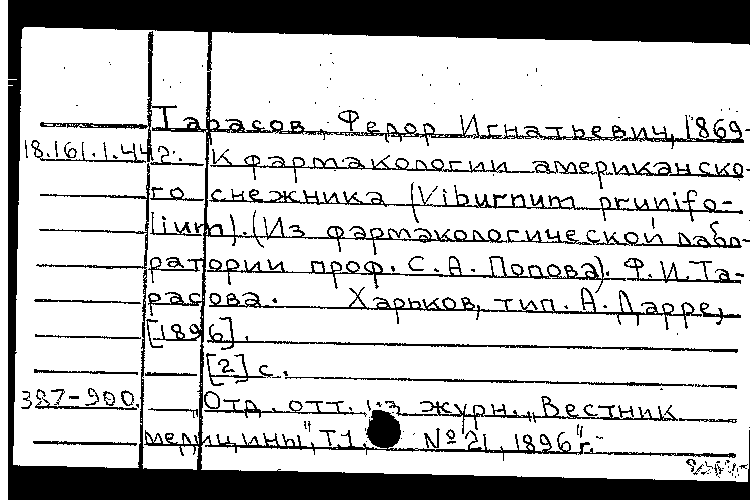 Тарасов, Федор Игнатьевич, 1869-
18.161.1.442. К фармакологии американско-
го снежника (Viburnum prunifo-
lium). (Из фармакологической лабо-
ратории проф. С. А. Попова). Ф. И. Та-
расова. Харьков, тип. А. Дарре,
[1896].
[2] с.
387-900. Отд. отт. из журн. "Вестник
медицины", Т.1, № 21, 1896 г.-